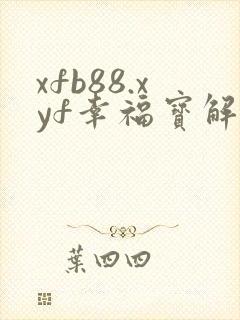 xfb88.x
yf幸福寶解
葉四四